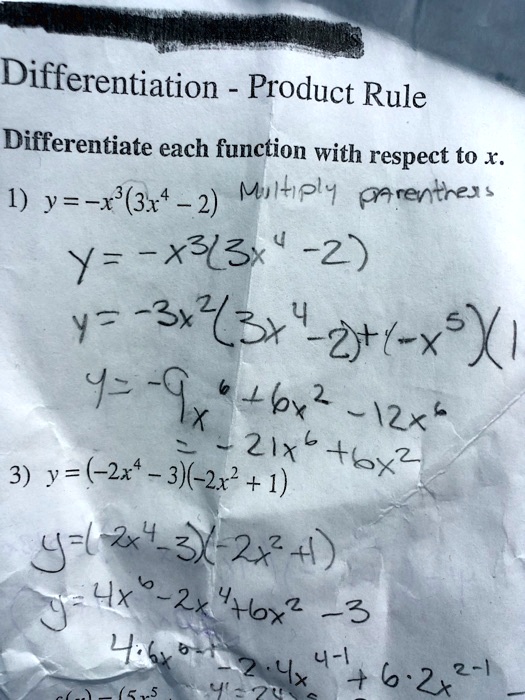 Differentiation - Product Rule
Differentiate each function with respect to x.
1) y = -x³(3x⁴ - 2) Multiply parenthess
y = -x³(3x⁴ -2)
y = -3x²(3x⁴-2)+(-x⁵)(1
y = -9x⁶ +6x² -12x⁶
= -21x⁶ +6x²
3) y = (-2x⁴ - 3)(-2x² + 1)
y=(-2x⁴-3)(-2x²+1)
y = 4x⁶-2x⁴+6x² -3
4·6x⁶⁻¹ -2·4x⁴⁻¹ + 6·2x²⁻¹
y' = 24